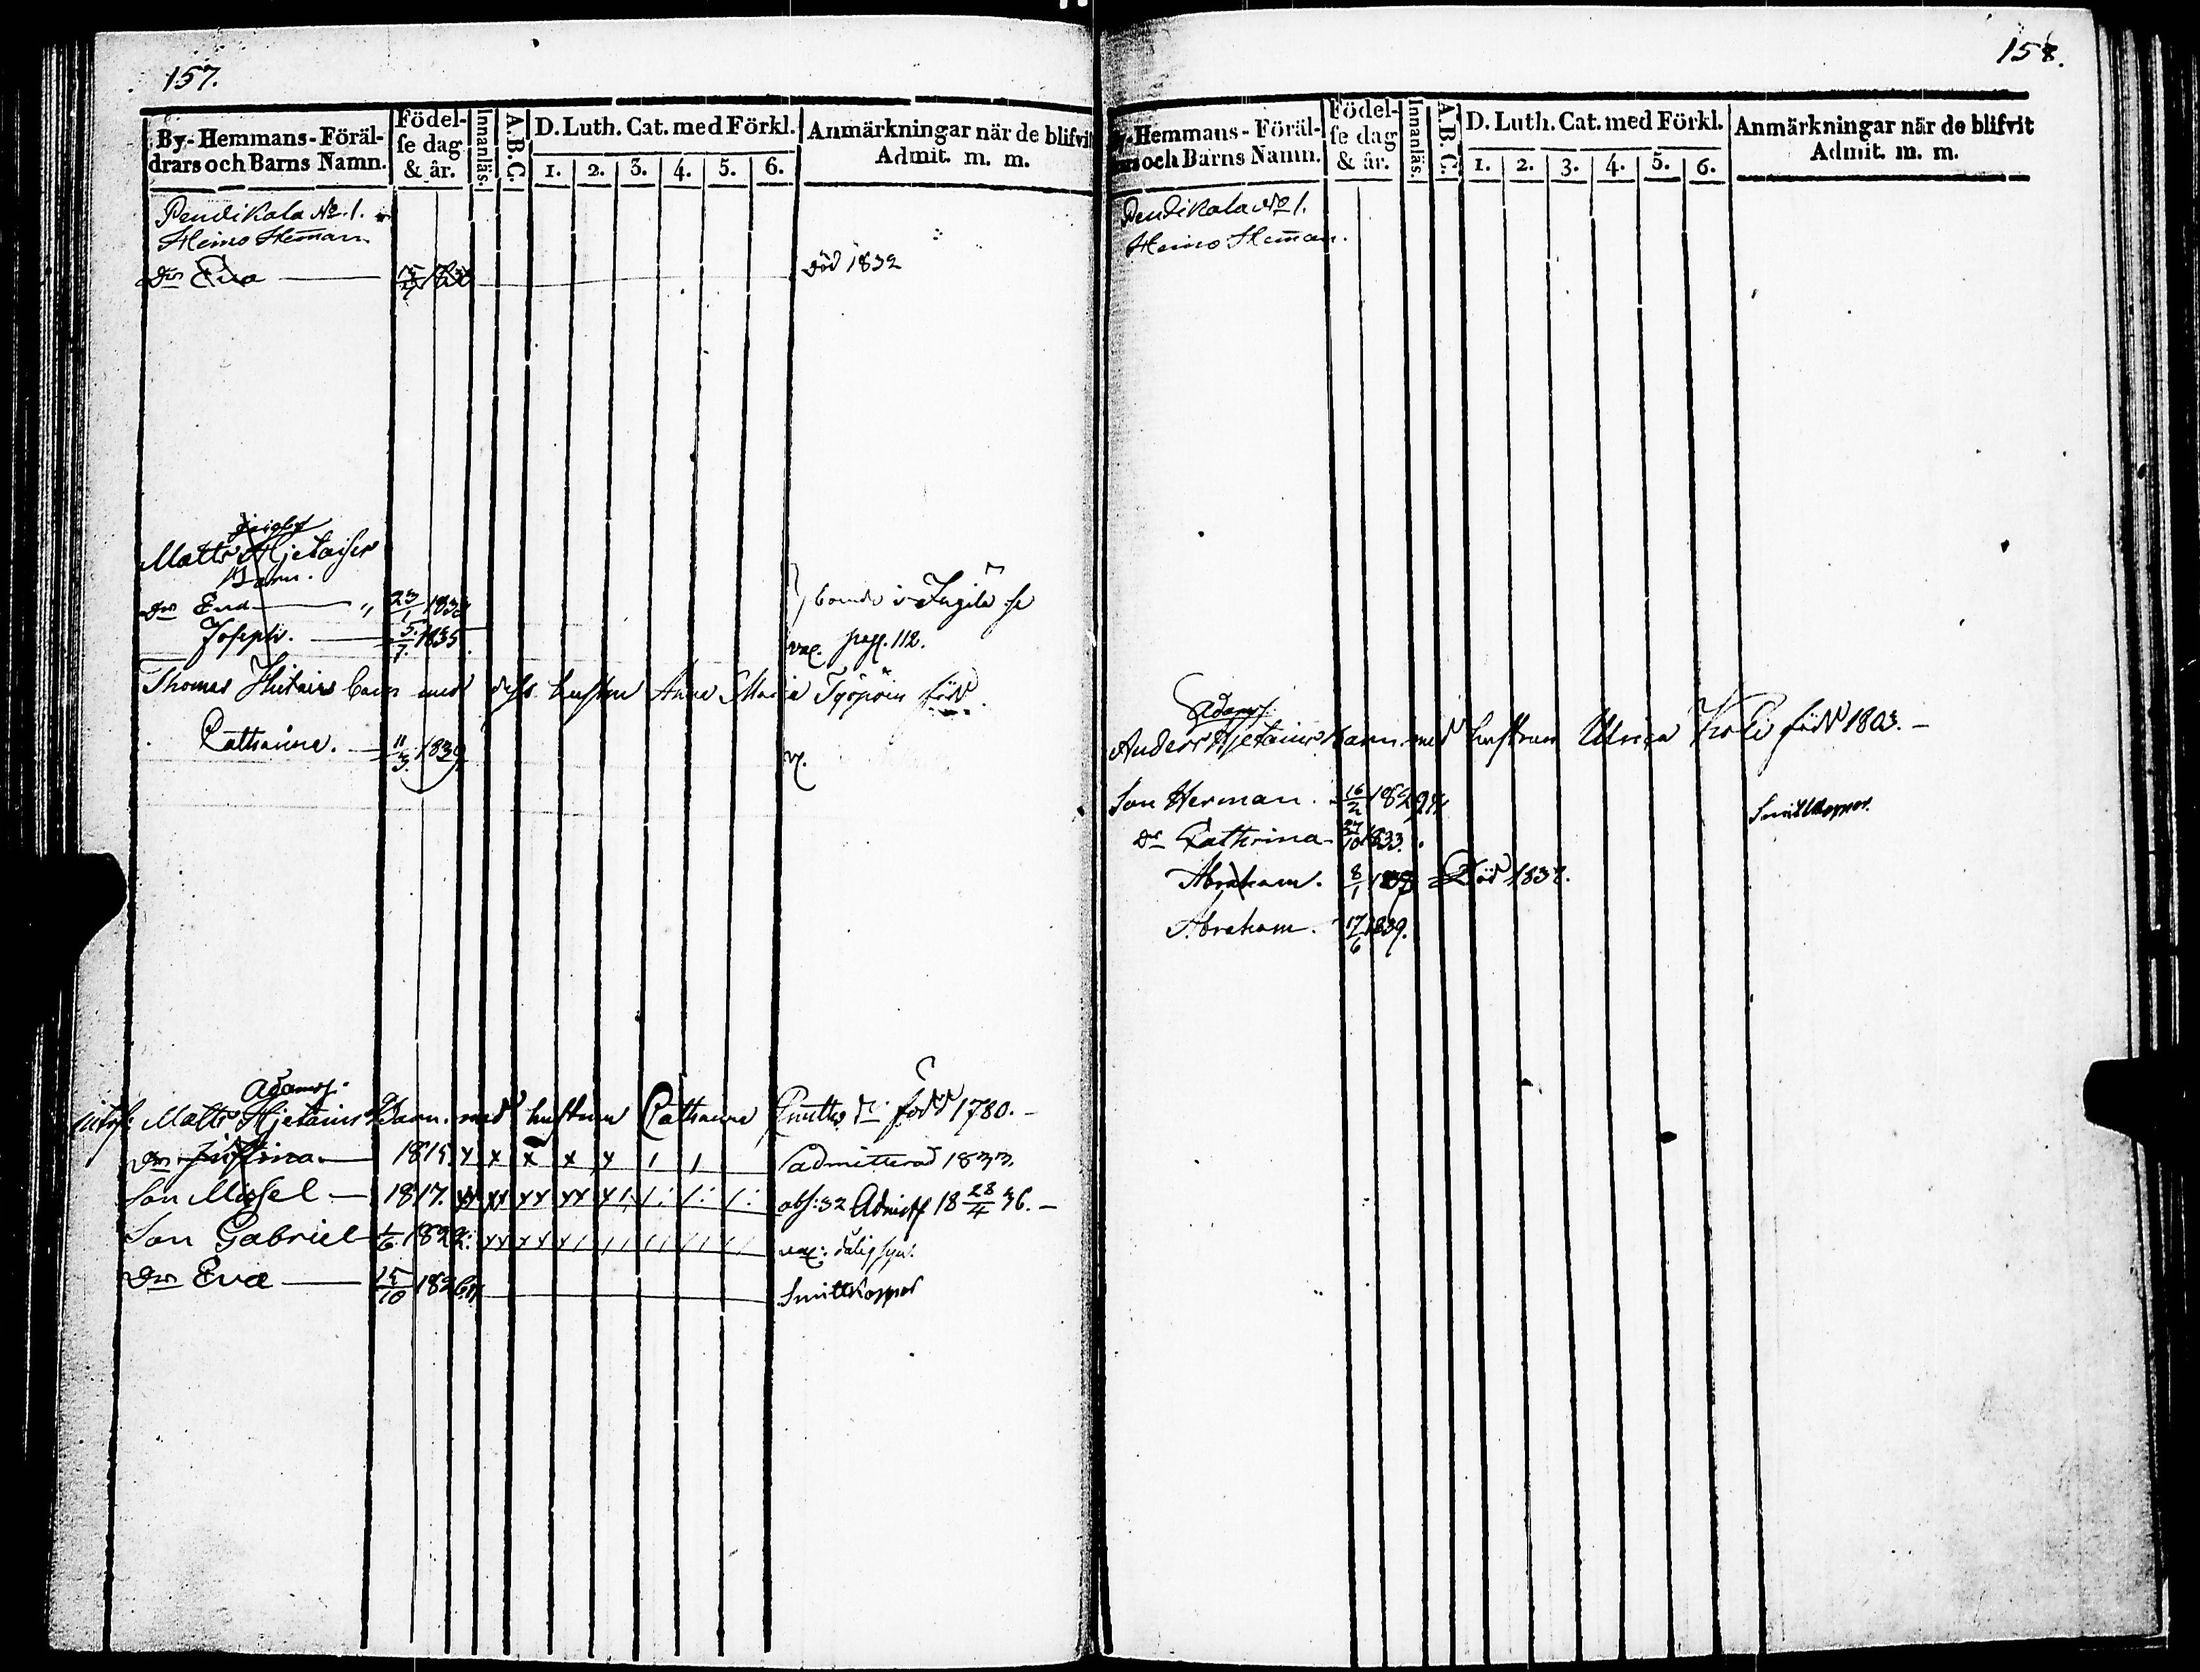 157.
By- Hemmans- Föräl-
drars och Barns Namn.
Födel-
se dag
& år.
Innanläs.
A.B.C.
D. Luth. Cat. med Förkl.
1. 2. 3. 4. 5. 6.
Anmärkningar när de blifvit
Admit. m. m.
Pendikala No. 1.
Heino Heman
Dr Eva
Död 1832
Matts Hjetaiser
Barn.
Dr Eva 23/1 183
Joseph. 5/7 1835
vac. pag. 112.
Thomas Hietains barn med dess hustru Anna Maria född
Catharina. 11/3 1839
v.
Adams.
Matts Hjetains Barn med hustrun Catharina född 1780. –
Dr Justina 1815 x x x x x / / admitterad 1833.
Son Missel 1817. xx xx xx xx x/ /: /: /: abs: 32 Admitt 18 28/4 36. –
Son Gabriel 1/6 1822: xx xx x/ // // // // vac: dålig syn:
Dr Eva 15/10 1826 Smittkoppor
158.
By-Hemmans-Föräl-
drars och Barns Namn.
Födel-
se dag
& år.
Innanläs.
A.B.C.
D. Luth. Cat. med Förkl.
1. 2. 3. 4. 5. 6.
Anmärkningar när de blifvit
Admit. m. m.
Pendikala No 1.
Heino Heman.
Adams.
Anders Hjetains barn med hustrun Ulrica född 1803. –
Son Herman. 16/2 1829 Smittkoppor.
Dr Cathrina 27/10 1833.
Abraham. 8/1 Död 1838.
Abraham. 17/6 1839.